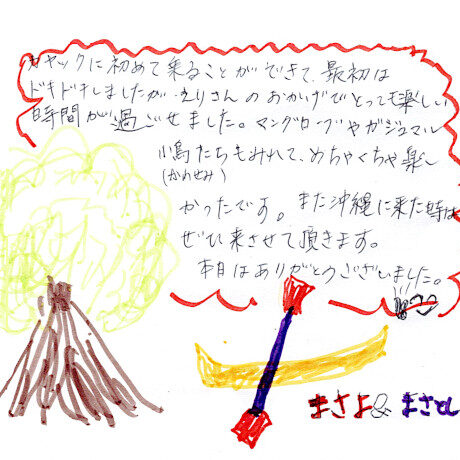 カヤックに初めて乗ることができて、最初は
ドキドキしましたが、えりさんのおかげでとっても楽しい
時間が過ごせました。マングローブやガジュマル
小鳥たちもみれて、めちゃくちゃ楽し
(かわせみ)
かったです。また沖縄に来た時は
ぜひ来させて頂きます。
本日はありがとうございました。
まさよ&まさとし